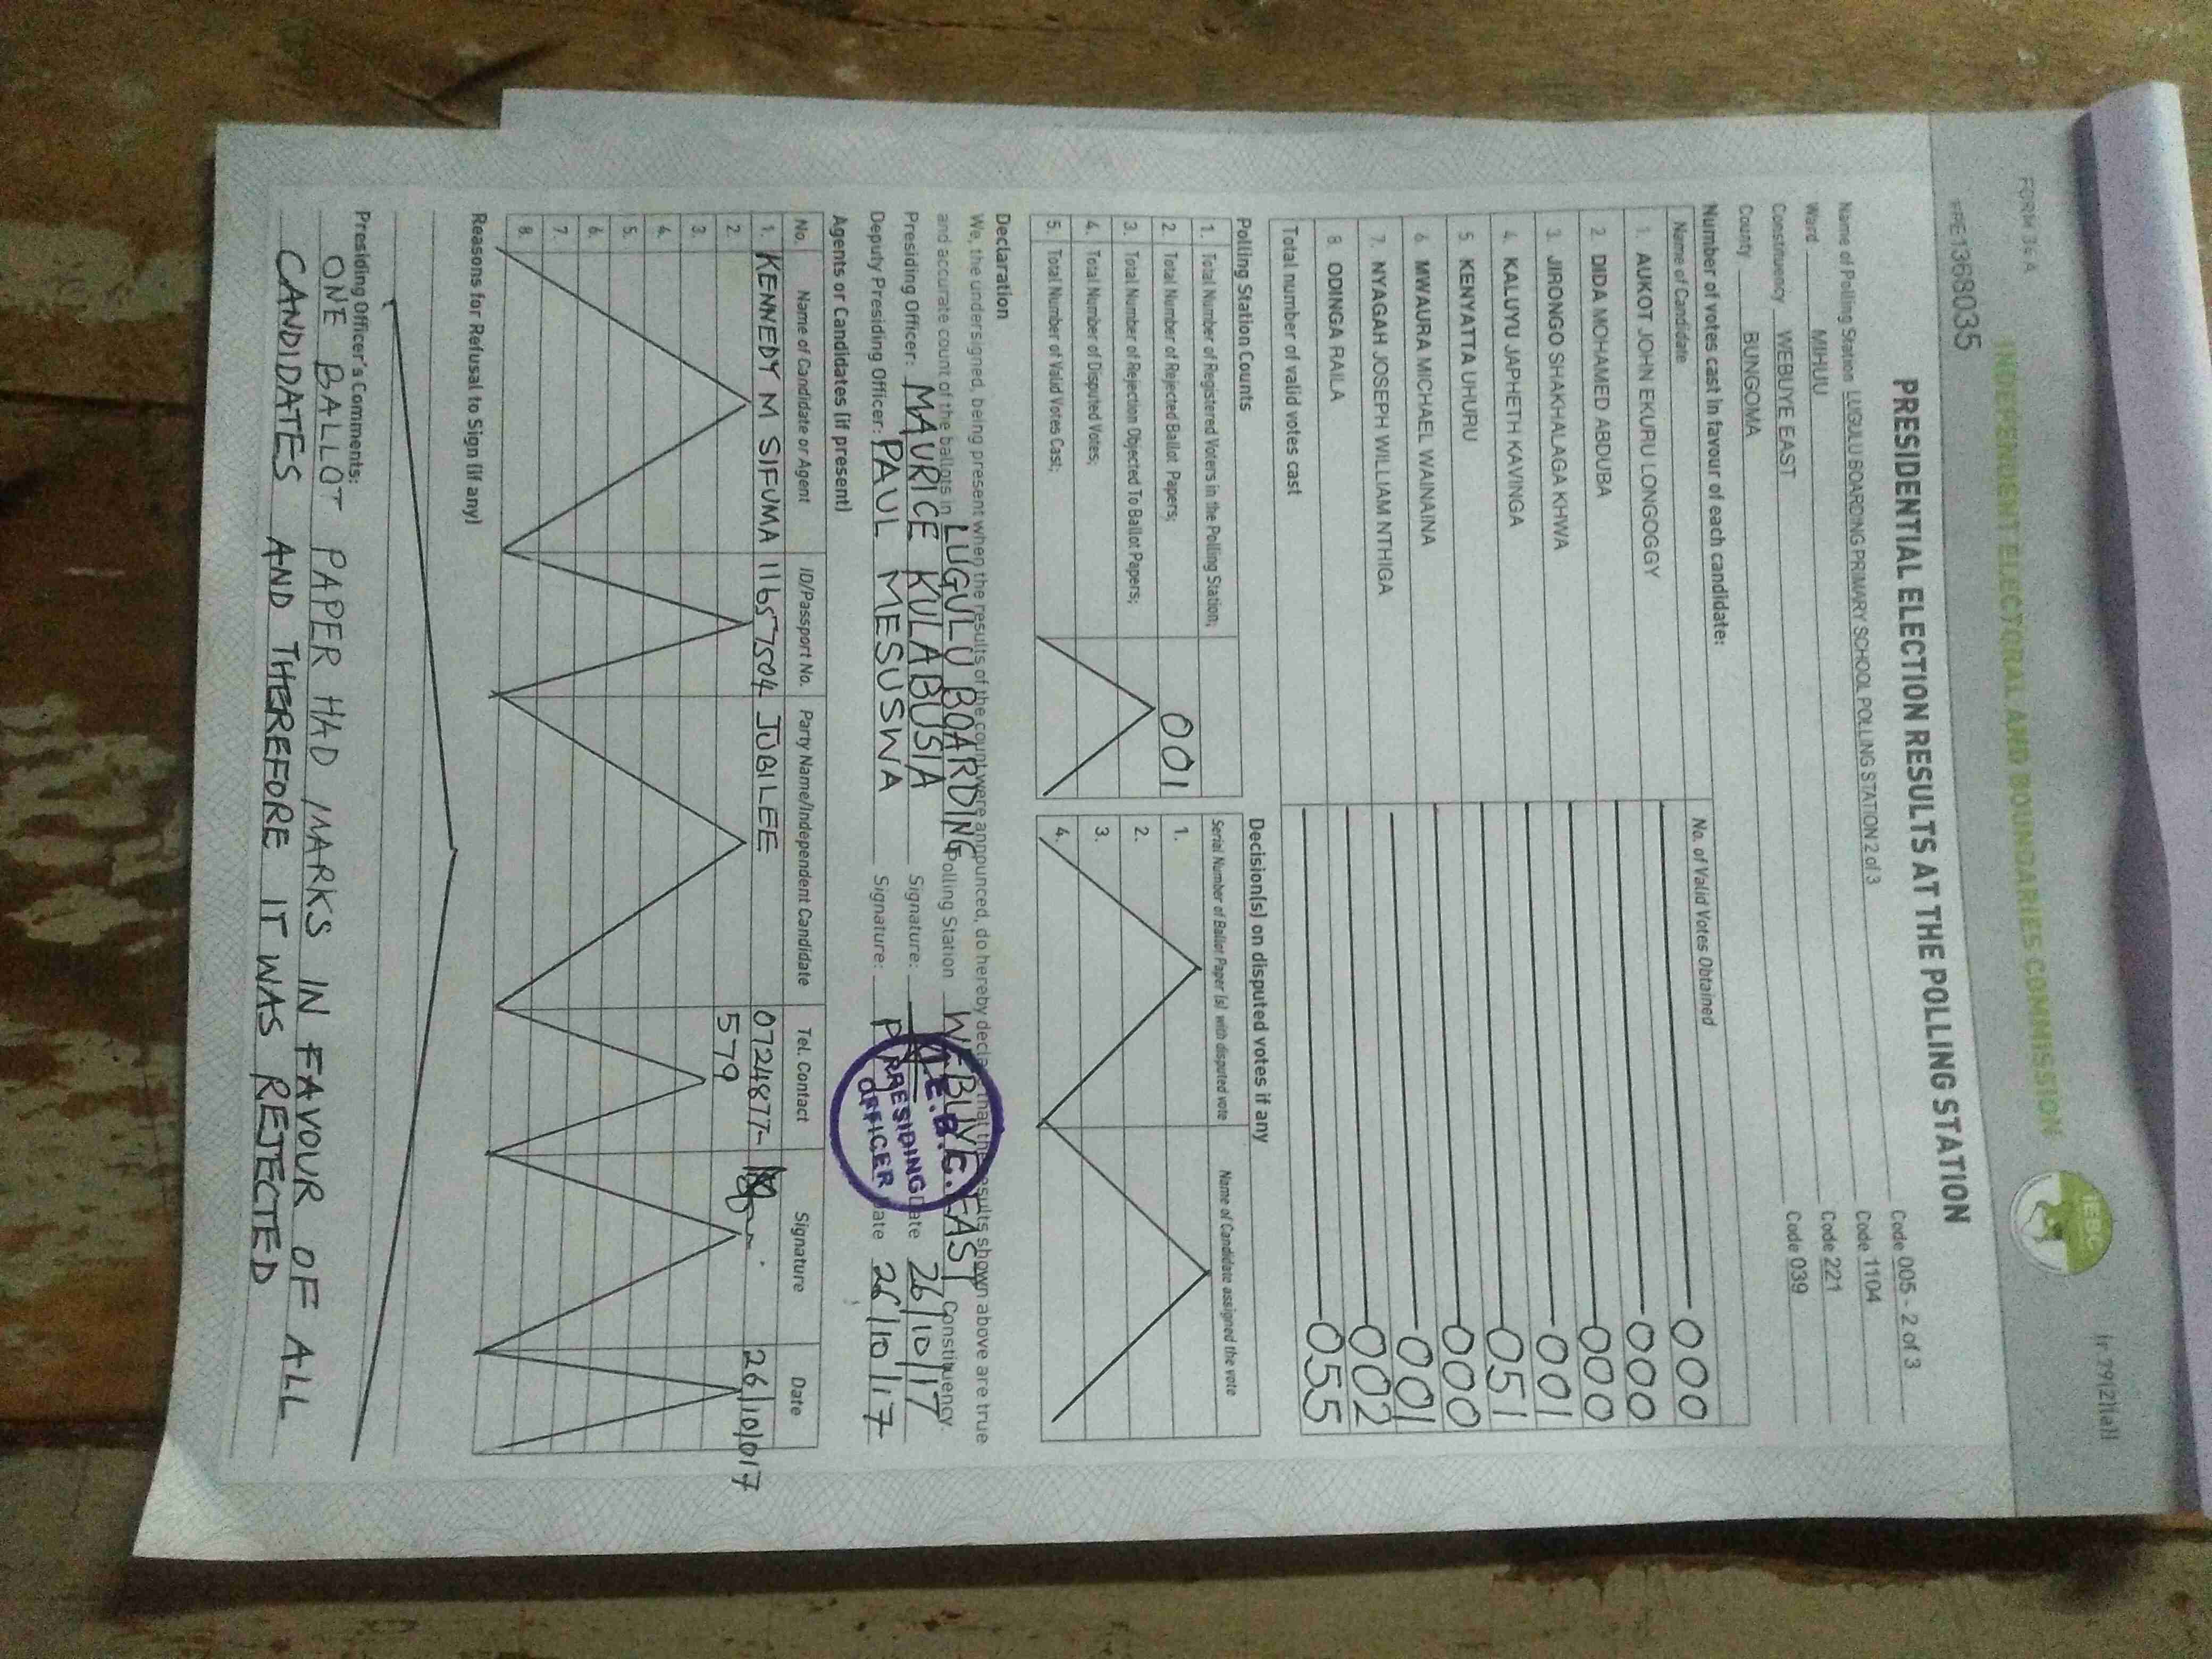 FORM 34 A
(r 79(2)(a))
INDEPENDENT ELECTORAL AND BOUNDARIES COMMISSION
IEBC
PRE1368035
PRESIDENTIAL ELECTION RESULTS AT THE POLLING STATION
Name of Polling Station LUGULU BOARDING PRIMARY SCHOOL POLLING STATION 2 of 3 Code 005 - 2 of 3
Ward MIHUU Code 1104
Constituency WEBUYE EAST Code 221
County BUNGOMA Code 039
Number of votes cast in favour of each candidate:
Name of Candidate No. of Valid Votes Obtained
1. AUKOT JOHN EKURU LONGOGGY 000
2. DIDA MOHAMED ABDUBA 000
3. JIRONGO SHAKHALAGA KHWA 000
4. KALUYU JAPHETH KAVINGA 001
5 KENYATTA UHURU 051
6 MWAURA MICHAEL WAINAINA 000
7. NYAGAH JOSEPH WILLIAM NTHIGA 001
8. ODINGA RAILA 002
Total number of valid votes cast 055
Polling Station Counts
1. Total Number of Registered Voters in the Polling Station;
2. Total Number of Rejected Ballot Papers; 001
3. Total Number of Rejection Objected To Ballot Papers;
4. Total Number of Disputed Votes;
5. Total Number of Valid Votes Cast;
Decision(s) on disputed votes if any
Serial Number of Ballot Paper (s) with disputed vote Name of Candidate assigned the vote
1.
2.
3.
4.
Declaration
We, the undersigned, being present when the results of the count were announced, do hereby declare that the results shown above are true
and accurate count of the ballots in LUGULU BOARDING Polling Station WEBUYE EAST Constituency.
Presiding Officer: MAURICE KULABUSIA Signature: Date 26/10/17
Deputy Presiding Officer: PAUL MESUSWA Signature: Date 26/10/17
I.E.B.C.
PRESIDING
OFFICER
Agents or Candidates (if present)
No. Name of Candidate or Agent ID/Passport No. Party Name/Independent Candidate Tel. Contact Signature Date
1. KENNEDY M SIFUMA 11657504 JUBILEE 0724877- 26/10/017
2. 579
3.
4.
5.
6.
7.
8.
Reasons for Refusal to Sign (if any)
Presiding Officer's Comments:
ONE BALLOT PAPER HAD MARKS IN FAVOUR OF ALL
CANDIDATES AND THEREFORE IT WAS REJECTED